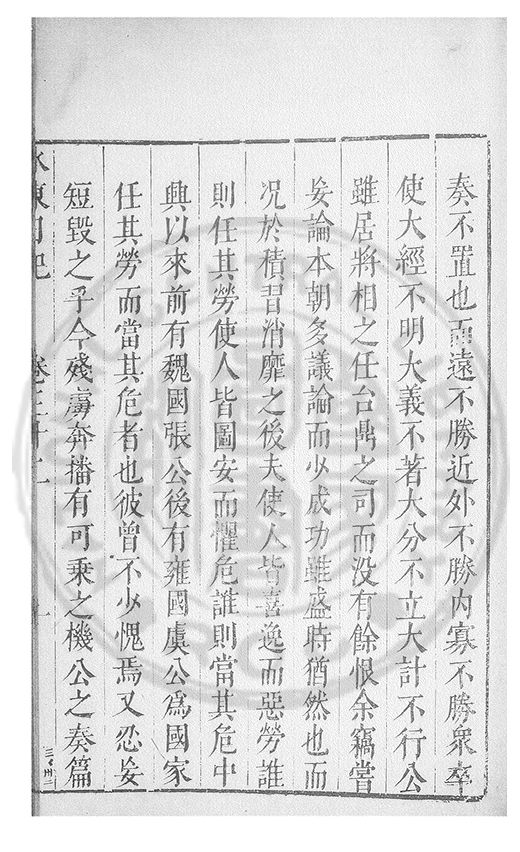 奏不置也而遠不勝近外不勝内寡不勝衆卒
使大經不明大義不著大分不立大計不行公
雖居將相之任台鼎之司而没有餘恨余竊嘗
妄論本朝多議論而少成功雖盛時猶然也而
况於積習消靡之後夫使人皆喜逸而惡勞誰
則任其勞使人皆圖安而懼危誰則當其危中
興以來前有魏國張公後有雍國虞公爲國家
任其勞而當其危者也彼曾不少愧焉又忍妄
短毀之乎今殘虜奔播有可乘之機公之奏篇
水東日記 卷三十二 一